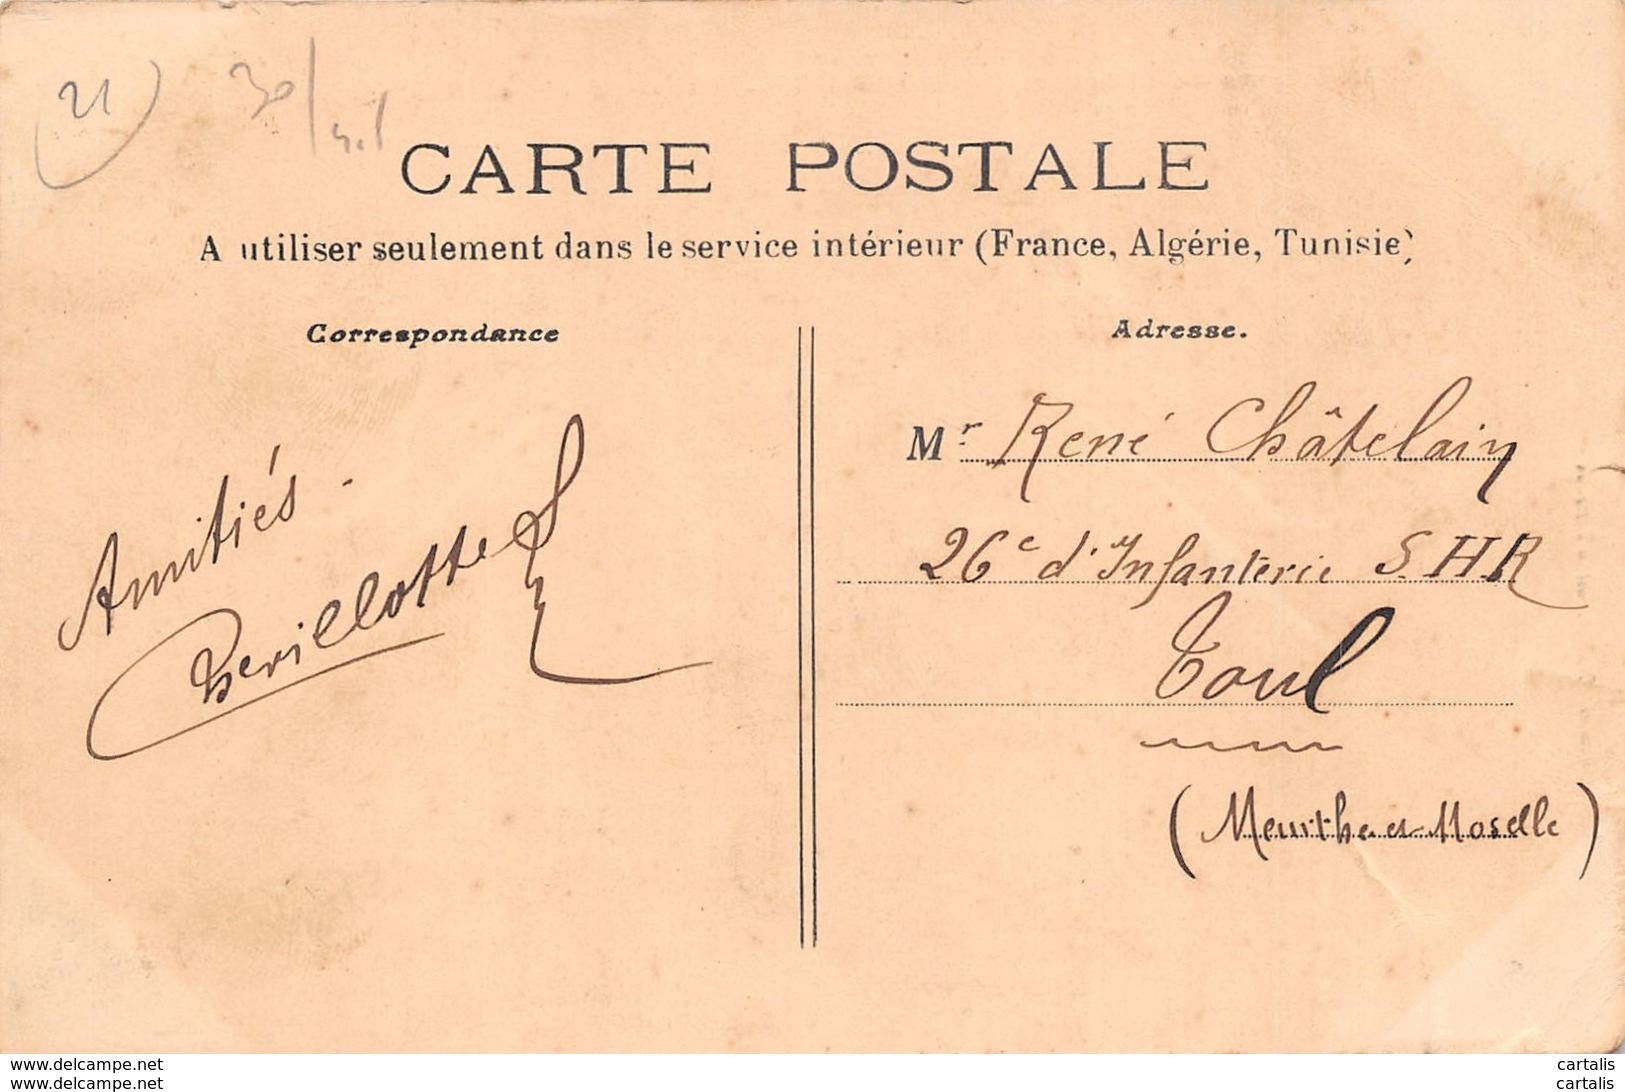 21
30/
CARTE POSTALE
A utiliser seulement dans le service intérieur (France, Algérie, Tunisie)
Correspondance
Amitiés.
Adresse.
Mr René Châtelain
26e d'Infanterie S.H.R
Toul
(Meurthe et Moselle)
www.delcampe.net cartalis
www.delcampe.net cartalis